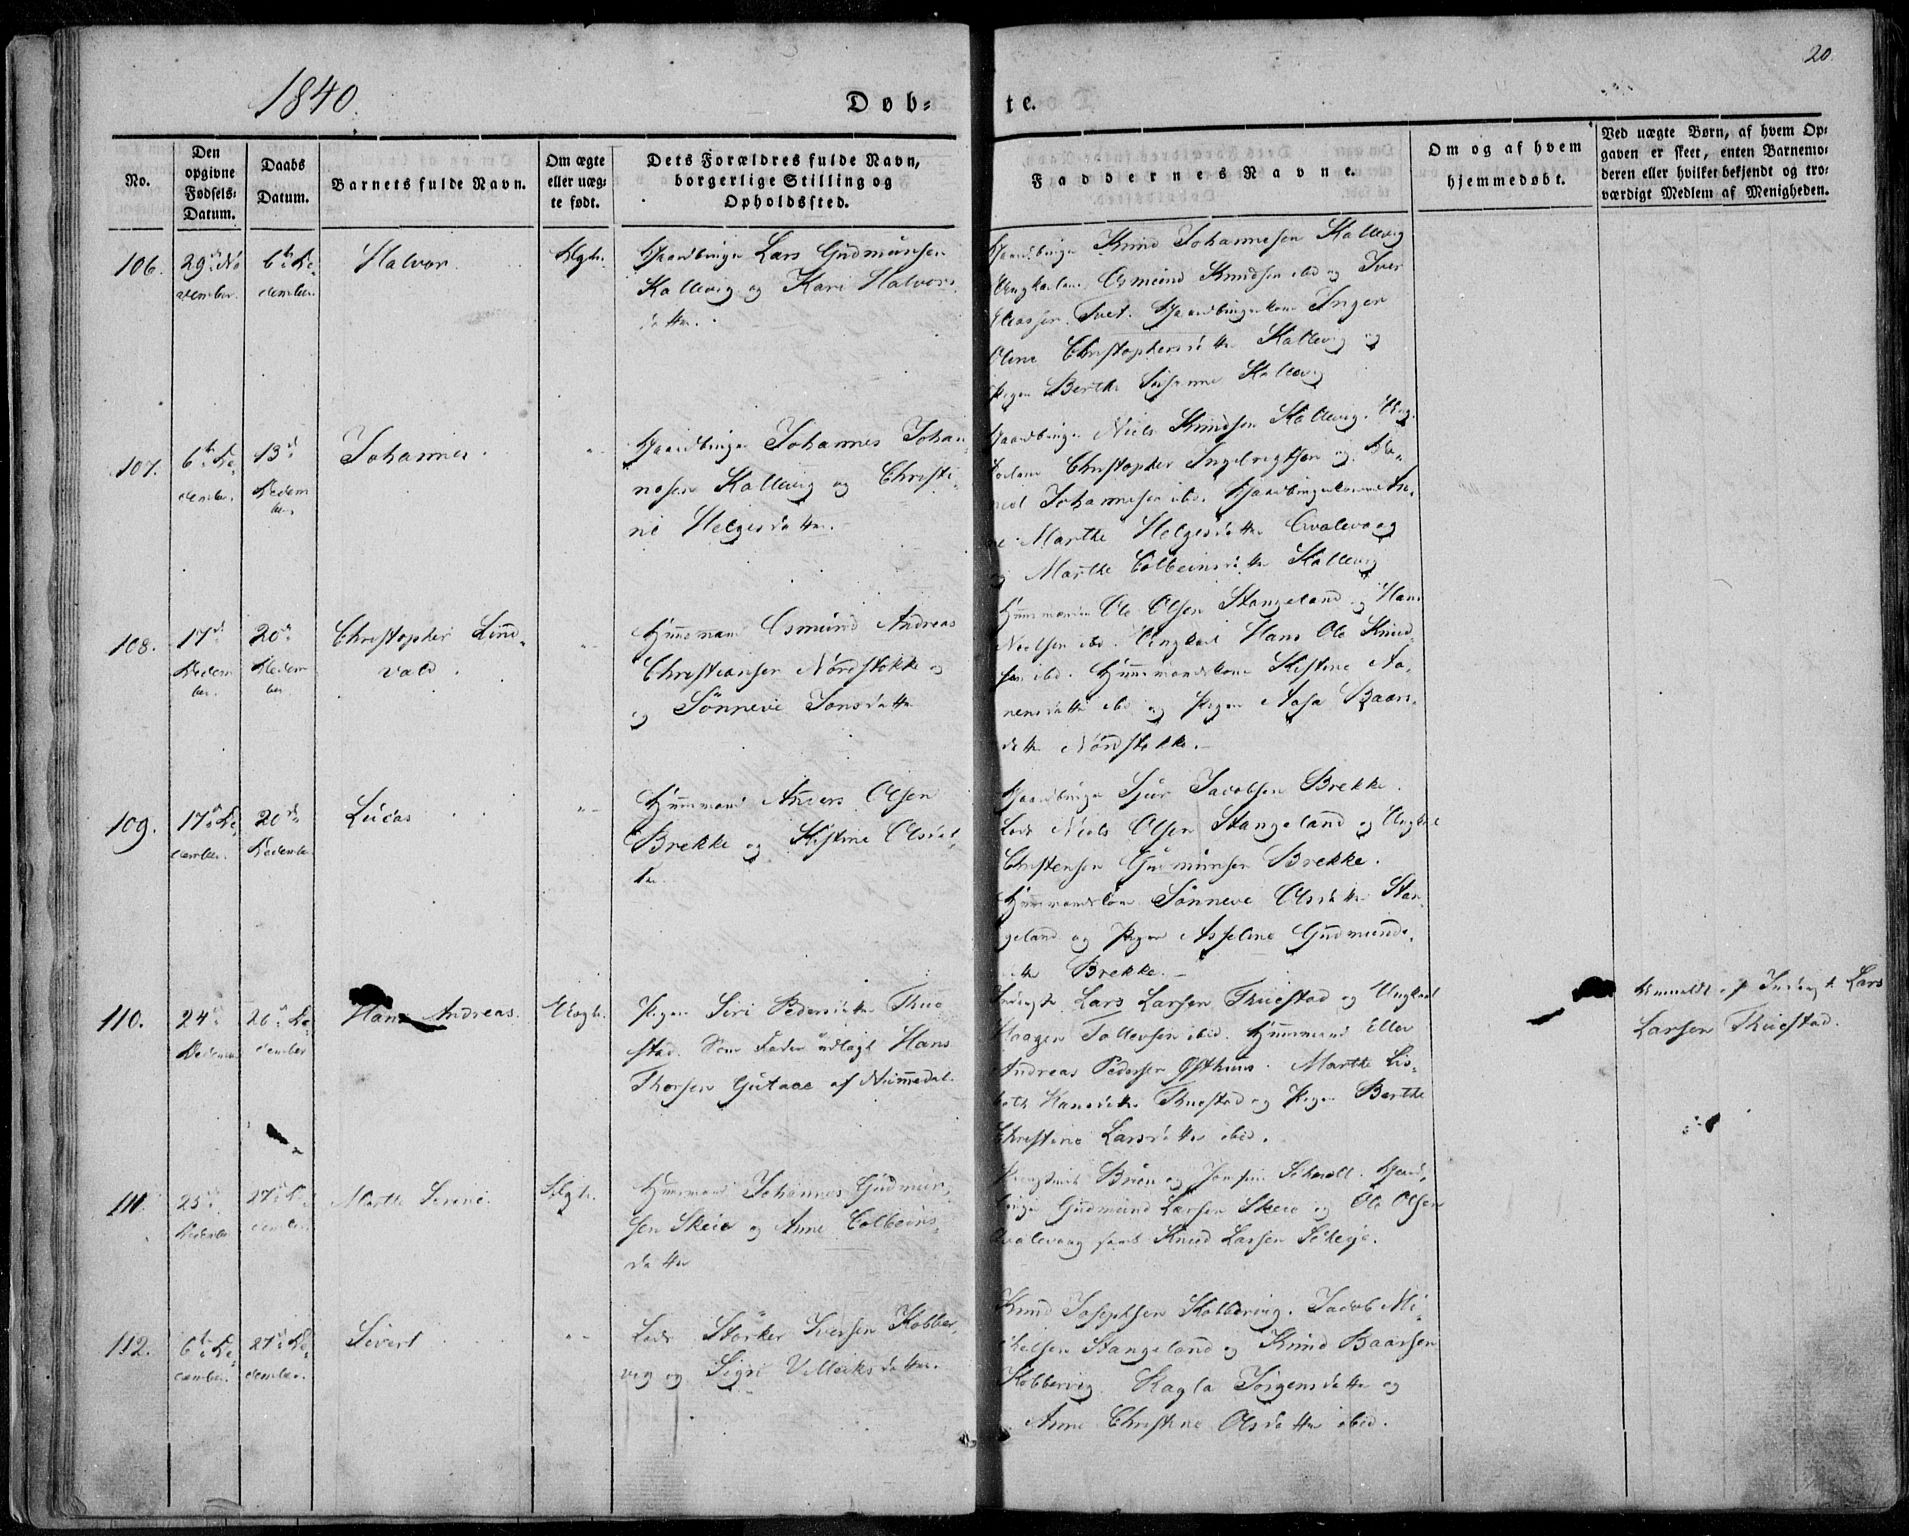 20
1840.
Døb=
te.
No.
Den
opgivne
Fødsels-
Datum.
Daabs
Datum.
Barnets fulde Navn.
Om ægte
eller uæg-
te født.
Dets Forældres fulde Navn,
borgerlige Stilling og
Opholdssted.
Faddernes Navne.
Om og af hvem
hjemmedøbt.
Ved uægte Børn, af hvem Op-
gaven er skeet, enten Barnemo-
deren eller hvilket bekjendt og tro-
værdigt Medlem af Menigheden.
106.
29de No
vember.
6te De
cember.
Halvor
Ægte
Gaardbruger Lars Gudmunsen
Kallevig og Kari Halvors
datter.
Gaardbruger Knud Johannesen Kallevig
Ungkarlene Osmund Knudsen ibid og Iver
Tvet. Inger
Oline Christophersdatter Kallevig og
Pigen Berthe Susanne Kallevig
107.
6te De
cember.
13de
Decem
ber
Johannes
Gaardbruger Johannes Johan
nesen Kallevig og Christi
ne Helgesdatter.
Gaardbruger Niels Knudsen Kallevig. Ung
karlene Christopher Ingebrigtsen og
Johannesen ibid.
Marthe Helgesdatter Qvalevaag
og Marthe Colbeinsdatter Kallevig
108.
17de
Decem
ber.
20de
Decem
ber
Christopher Lind
vald
Huusmand Osmund Andreas
Christiansen Nordstokke og
og Sönneve Jonsdatter
Huusmændene Ole Olsen Stangeland og Hans
Neelsen ibid. Ungkarl Hans Ole Knud
sen ibid. Huusmandskone Kistine Aa
nensdatter ibid og Pigen Aasa Baars
datter Nordstokke.
109.
17de De
cember.
20de
December
Lucas
Huusmand Anders Olsen
Brekke og Kistine Olsdat
ter.
Gaardbruger Sjur Jacobsen Brekke.
Lods Niels Olsen Stangeland og Ungkarl
Christensen Gudmunsen Brekke.
Huusmandskone Sönneve Olsdatter Stan
geland og Pigen Asseline Gudmunds
datter Brekke.
110.
24de
December
26de De
cember
Hans Andreas.
Uægte
Pigen Siri Pedersdatter Thue
stad. Som Fader udlagt Hans
Thorsen Gutaae af Numedal.
Lars Larsen Thuestad og Ungkarl
Haagen Tollevsen ibid. Huusmand Eller
Andreas Pedersen Østhuus. Marthe Lis
beth Hansdatter Thuestad og Pigen Berthe
Christine Larsdatter ibid.
Anmeldt af Lars
Larsen Thuestad.
111.
25de
December
27de De
cember.
Marthe Serine
Ægte
Huusmand Johannes Gudmun
sen Skeie og Anne Colbeins
datter
Gaard
bruger Gudmund Larsen Skeie og Ole Olsen
Qvalevaag samt Knud Larsen
112.
6te De
cember.
27de De
cember.
Sivert
Lods Störker Iversen Kobber
vig og Sigri Villeiksdatter.
Knud Josephsen Kobbervig. Jacob Mi
chelsen Stangeland og Knud Baarsen
Kobbervig. Ragla Jörgensdatter og
Anne Christine Olsdatter ibid.